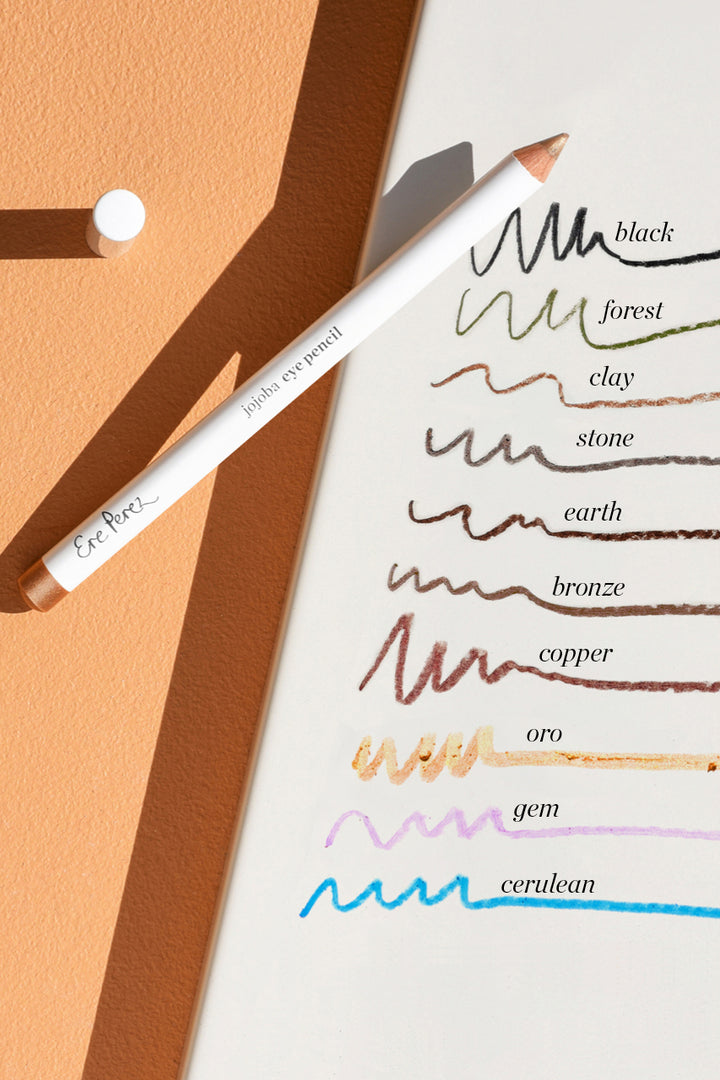 black
forest
jojoba eye pencil
clay
stone
Ere Perez
earth
bronze
copper
oro
gem
cerulean